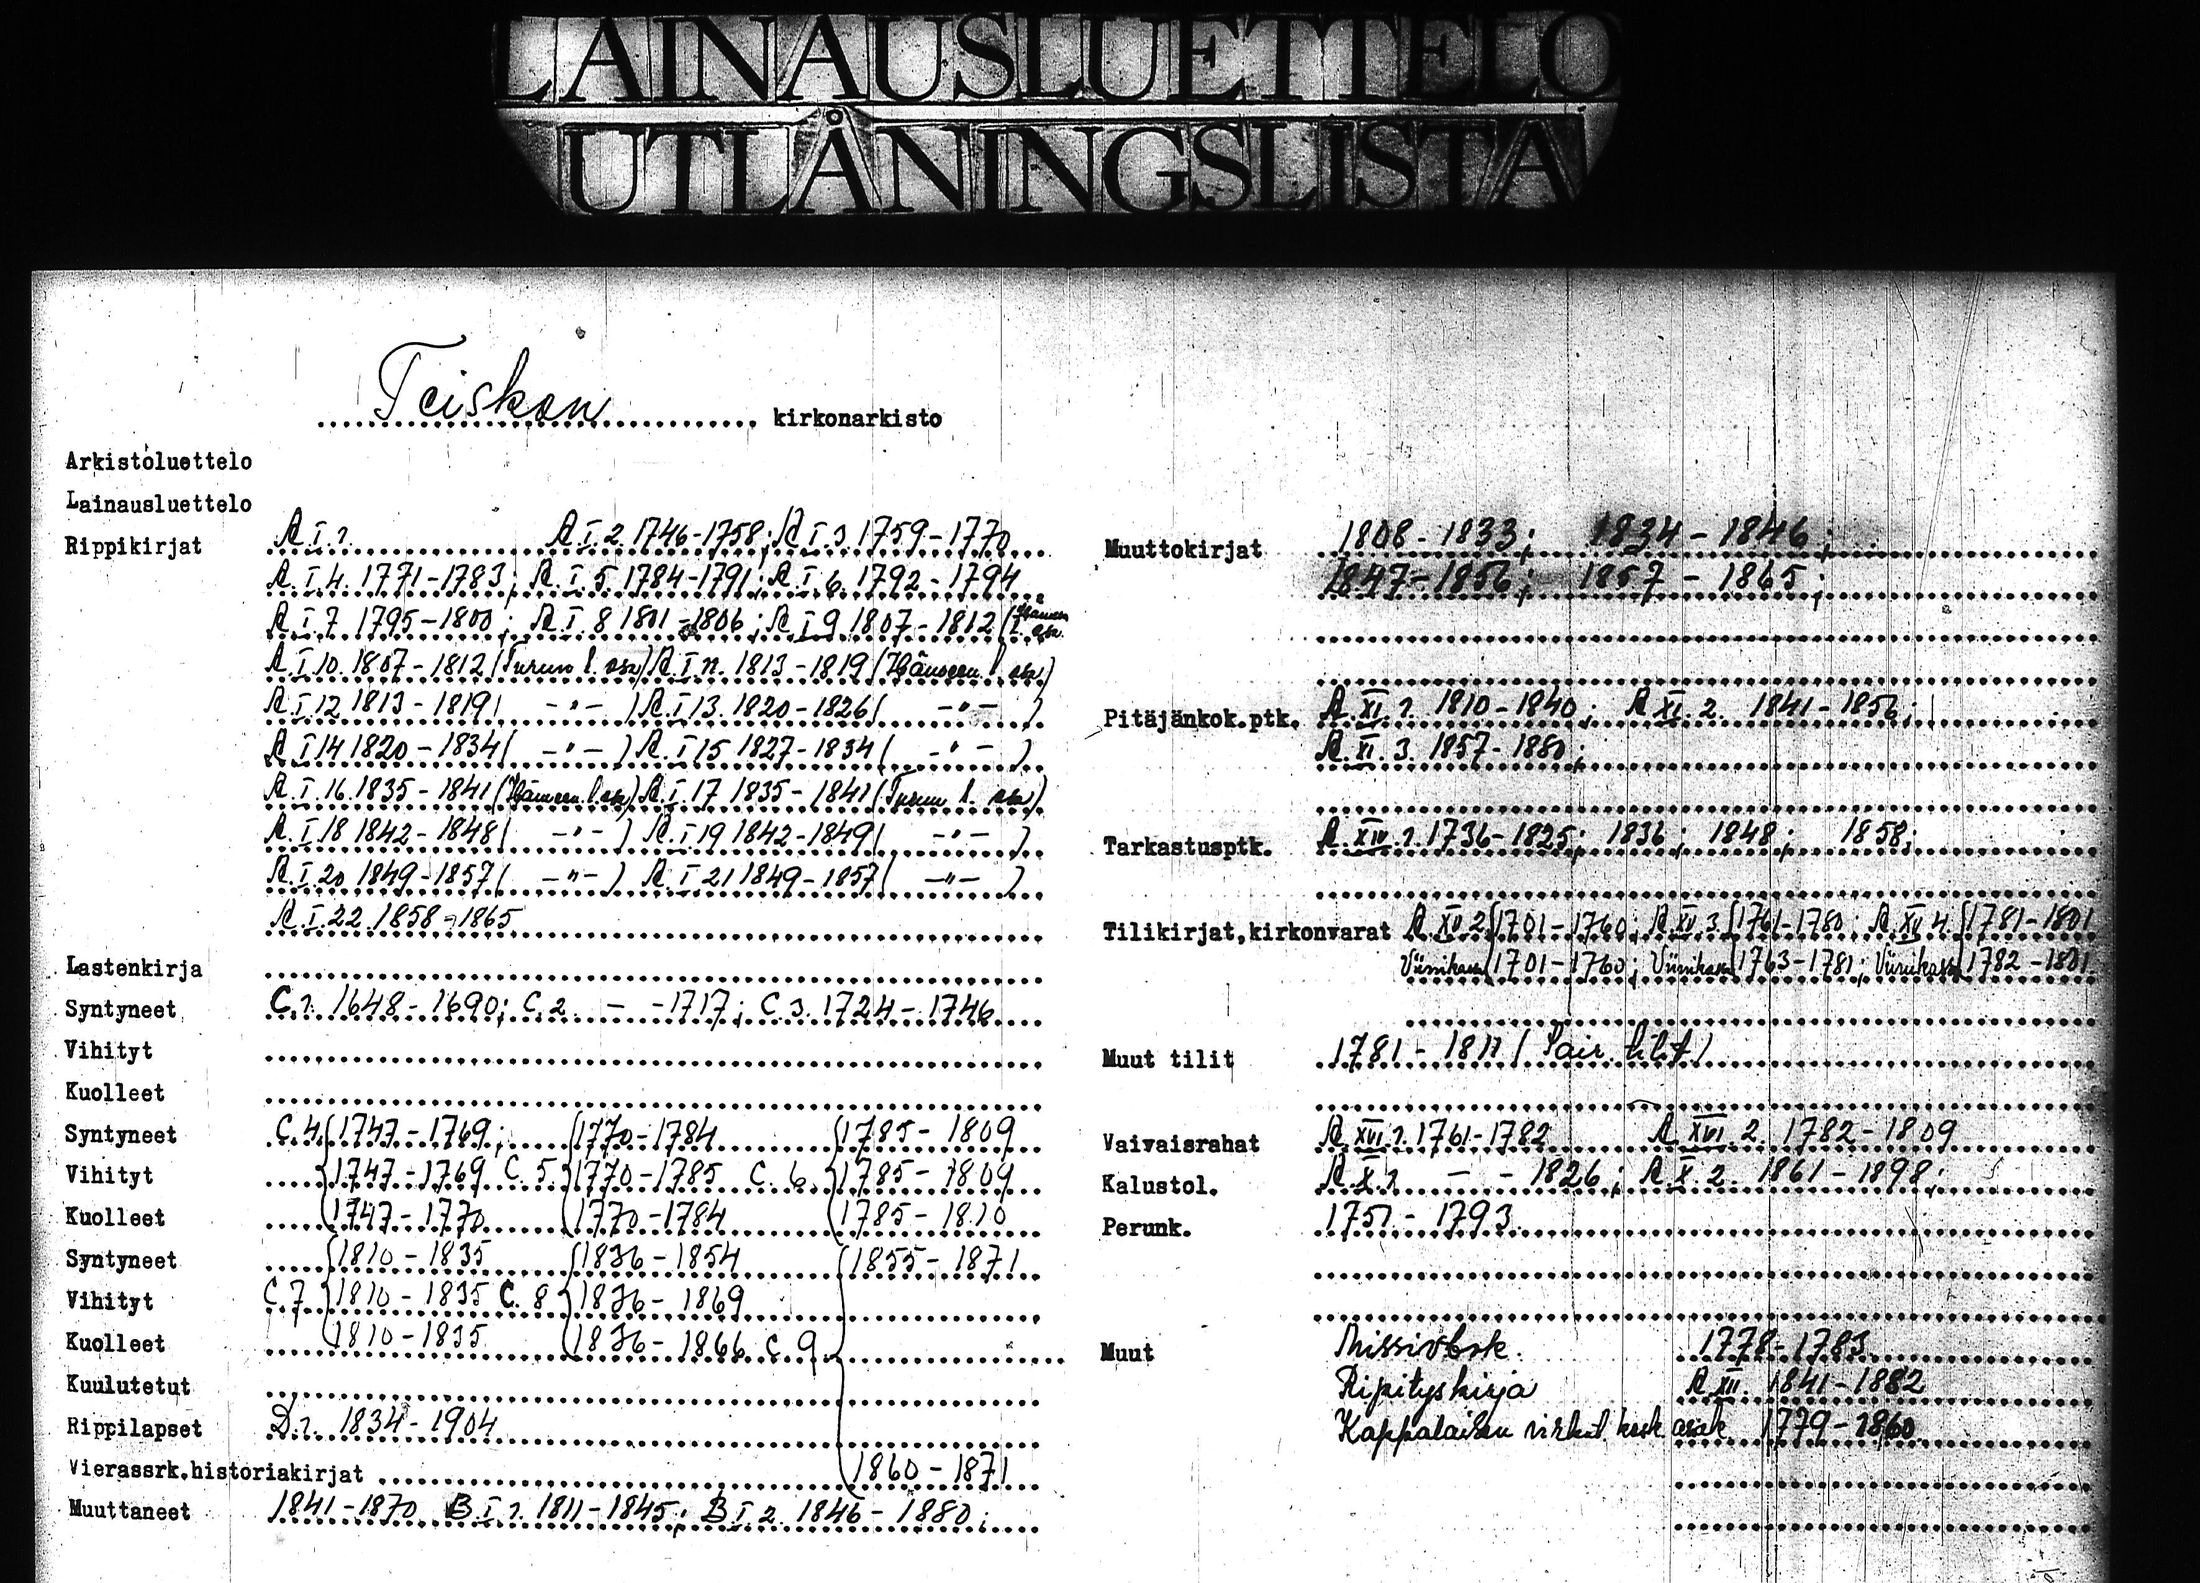 LAINAUSLUETTELO
UTLÅNINGSLISTA
Teiskon kirkonarkisto
Arkistoluettelo
Lainausluettelo
Rippikirjat A.I.1. A.I.2. 1746-1758; A.I.3. 1759-1770
A.I.4. 1771-1783; A.I.5. 1784-1791; A.I.6. 1792-1794
A.I.7 1795-1800; A.I.8 1801-1806; A.I.9 1807-1812 (Hämeen l. osa.
A.I.10. 1807-1812 (Turun l. osa) A.I.11. 1813-1819 (Hämeen l. osa)
A.I.12 1813-1819 ( -"- ) A.I.13. 1820-1826 ( -"- )
A.I.14 1820-1834 ( -"- ) A.I.15 1827-1834 ( -"- )
A.I.16. 1835-1841 (Hämeen l. osa) A.I.17 1835-1841 (Turun l. osa)
A.I.18 1842-1848 ( -"- ) A.I.19 1842-1849 ( -"- )
A.I.20 1849-1857 ( -"- ) A.I.21 1849-1857 ( -"- )
A.I.22. 1858-1865
Lastenkirja
Syntyneet C.1. 1648-1690; C.2. - -1717; C.3. 1724-1746
Vihityt
Kuolleet
Syntyneet C.4 1747-1769; 1770-1784 1785-1809
Vihityt 1747-1769 C.5. 1770-1785 C.6. 1785-1809
Kuolleet 1747-1770 1770-1784 1785-1810
Syntyneet 1810-1835 1836-1854 1855-1871
Vihityt C.7 1810-1835 C.8 1836-1869
Kuolleet 1810-1835 1836-1866 C.9
Kuulutetut
Rippilapset D.1. 1834-1904
Vierassrk.historiakirjat 1860-1871
Muuttaneet 1841-1870 B.I.1. 1811-1845; B.I.2. 1846-1880;
Muuttokirjat 1808-1833; 1834-1846;
1847-1856; 1857-1865;
Pitäjänkok.ptk. A.XI.1. 1810-1840; A.XI.2. 1841-1856;
A.XI.3. 1857-1880;
Tarkastusptk. A.XIV.1. 1736-1825; 1836; 1848; 1858;
Tilikirjat,kirkonvarat A.XV.2 1701-1760; A.XV.3. 1761-1780; A.XV.4. 1781-1801
Viinikassa 1701-1760; Viinikassa 1763-1781; Viinikassa 1782-1801
Muut tilit 1781-1811
Vaivaisrahat A.XVI.1. 1761-1782 A.XVI.2. 1782-1809
Kalustol. A.X.1. - - 1826; A.X.2. 1861-1898;
Perunk. 1751-1793
Muut 1778-1783
Ripityskirja A.XII. 1841-1882
Kappalaisen virkat. kosk. asiak. 1779-1860